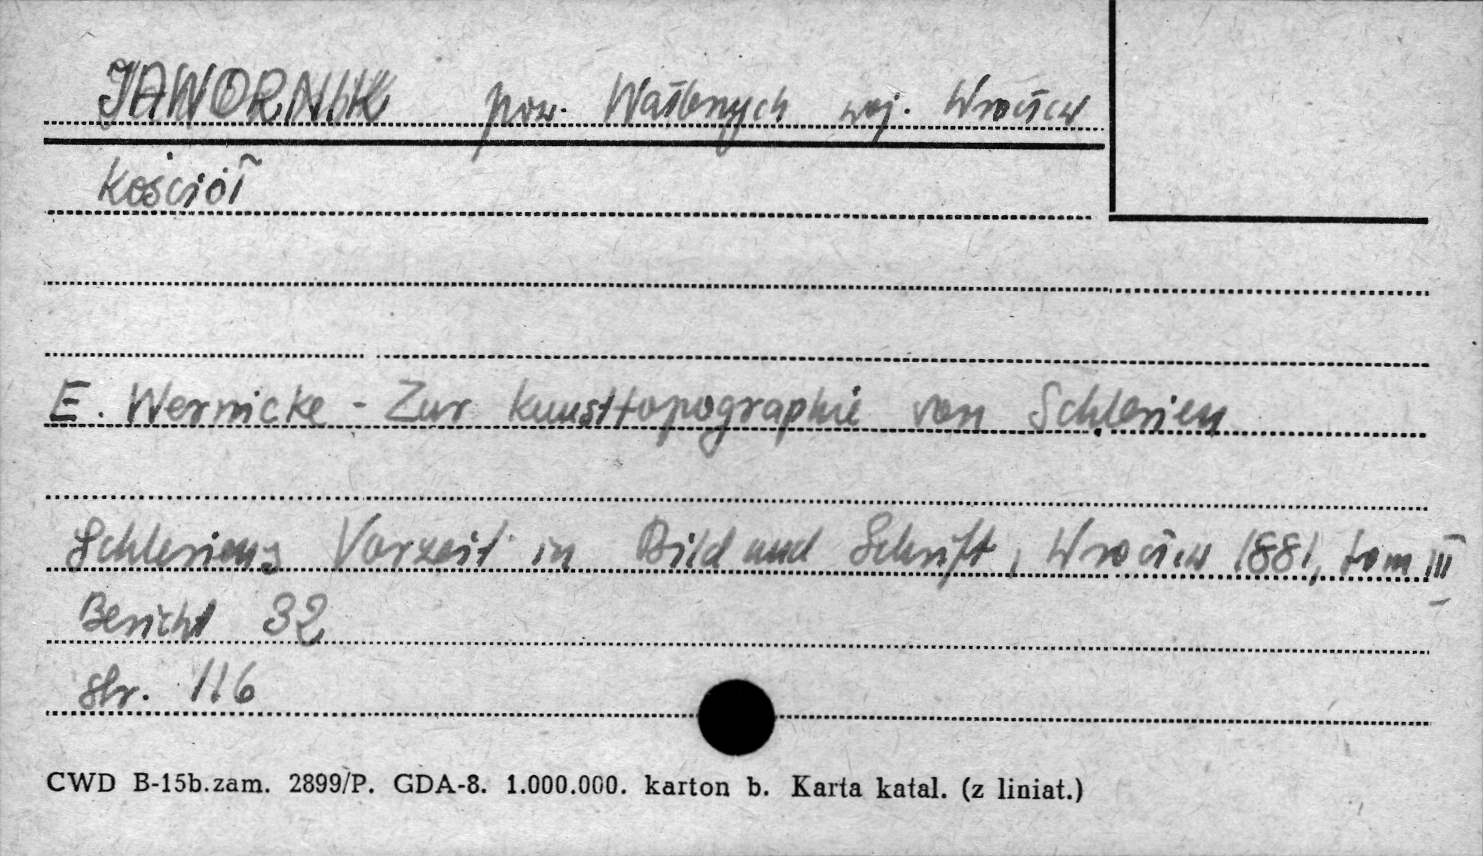 JAWORNIK pow. Wałbrzych woj. Wrocław
Kościół
E. Wernicke - Zur Kunsttopographie von Schlesien
Schlesiens Vorzeit in Bild und Schrift, Wrocław 1881, tom III
Bericht 32
str. 116
CWD B-15b.zam. 2899/P. GDA-8. 1.000.000. karton b. Karta katal. (z liniat.)